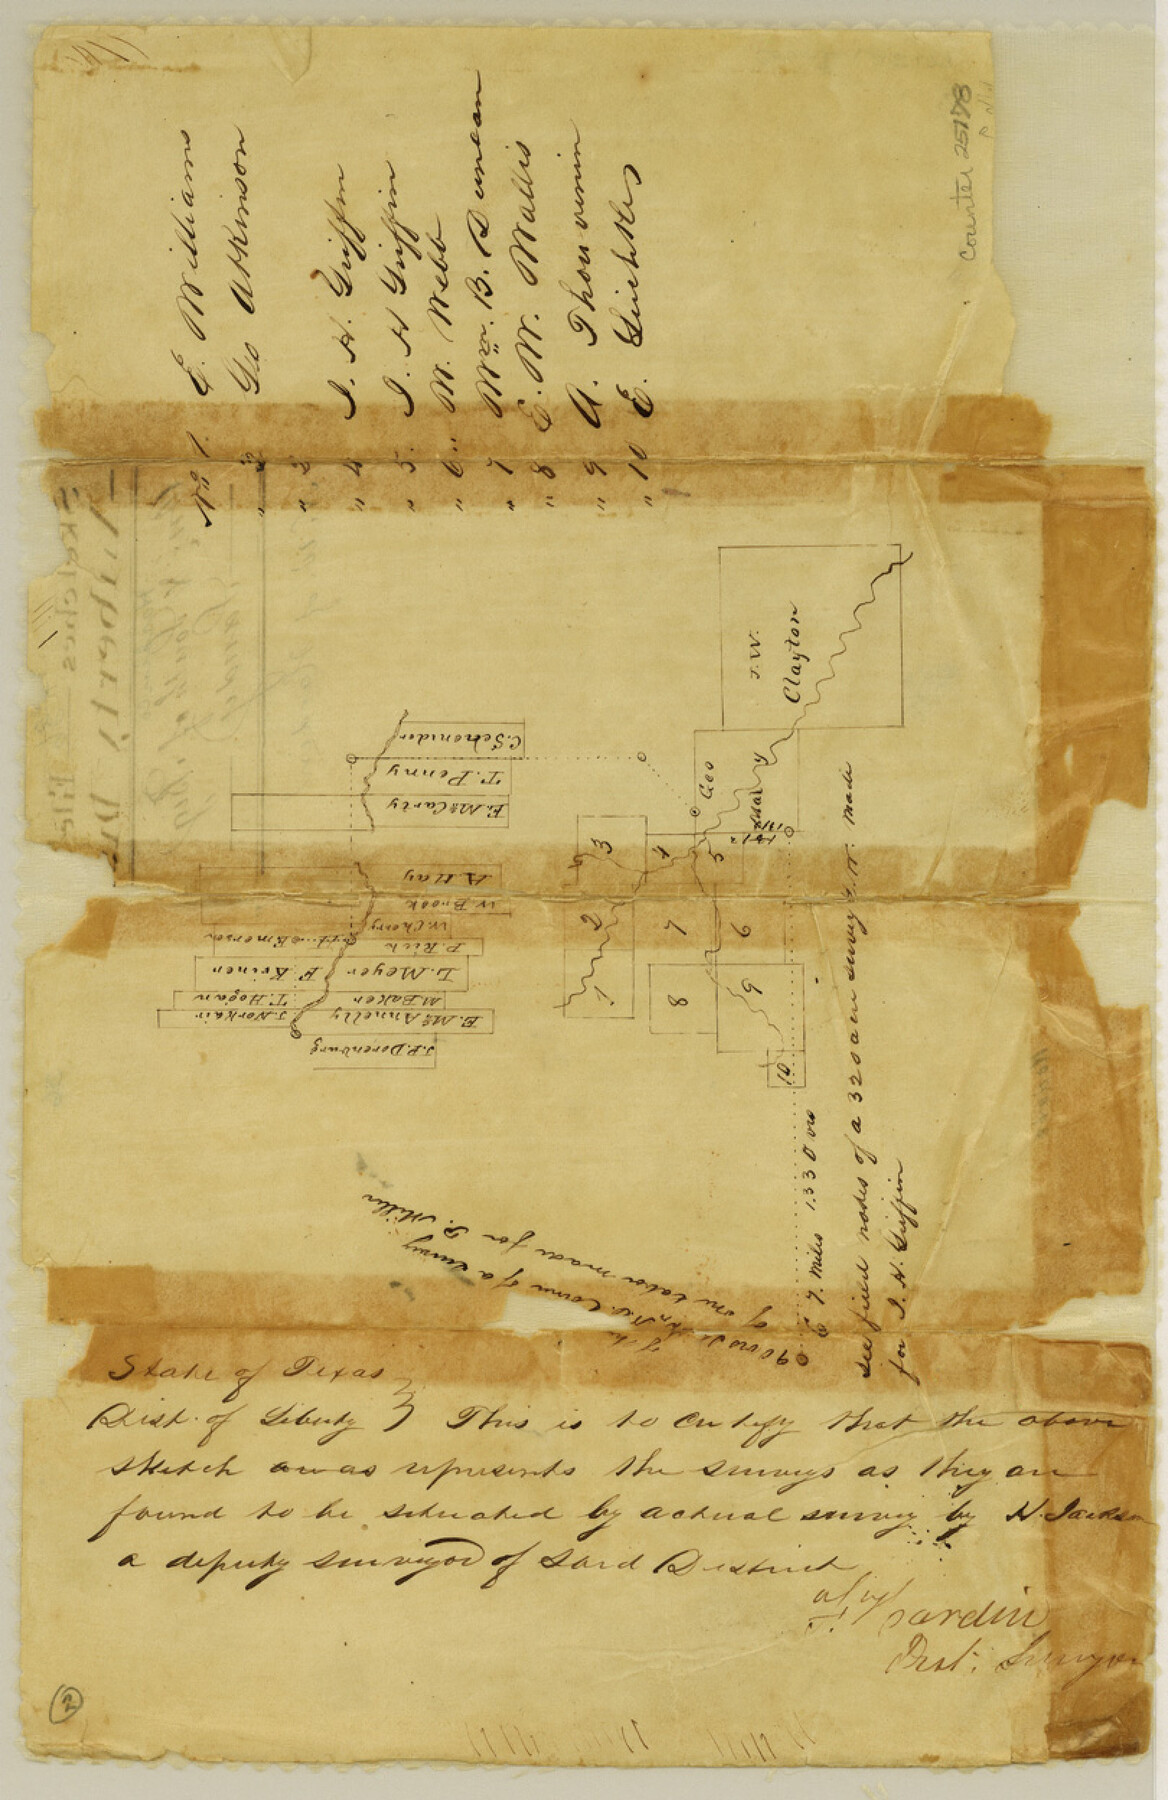 Counter 25178
No 1. E. Williams
" 2. Geo Atkinson
" 3.
" 4 I. H. Griffin
" 5. I. H Griffin
" 6. W. Webb
" 7 Wm. B. Duncan
" 8 E. W. Wallis
" 9 A. Thouvenin
" 10 E.
J. W.
Clayton
Geo
C. Schonidor
T. Penny
E. McCarty
A Hay
W. Brook
W. Cherry
P. Rick
Emerson
L. Meyer
F Kriner
M. Baker
T. Hogan
E. McAnnelly
J. Norkair
J. P. Dorenburg
1
2
3
4
5
6
7
8
9
10
E 7. Miles 1330 vrs
see field nodes of a 320 acre survey made
for I. H. Griffin
90 vrs
of a survey
of one labor made for P. Miller
State of Texas
Dist. of Liberty } This is to certify that the above
sketch represents the surveys as they are
found to be situated by actual survey by H. Jackson
a deputy surveyor of said District
Hardin
Dist. Surveyor
2